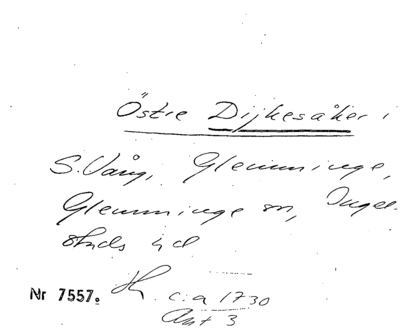 Östre Dijkesåker i
S. Vång, Glemminge,
Glemminge sn, Ingel-
stads hd
Nr 7557. c:a 1730
Ant 3